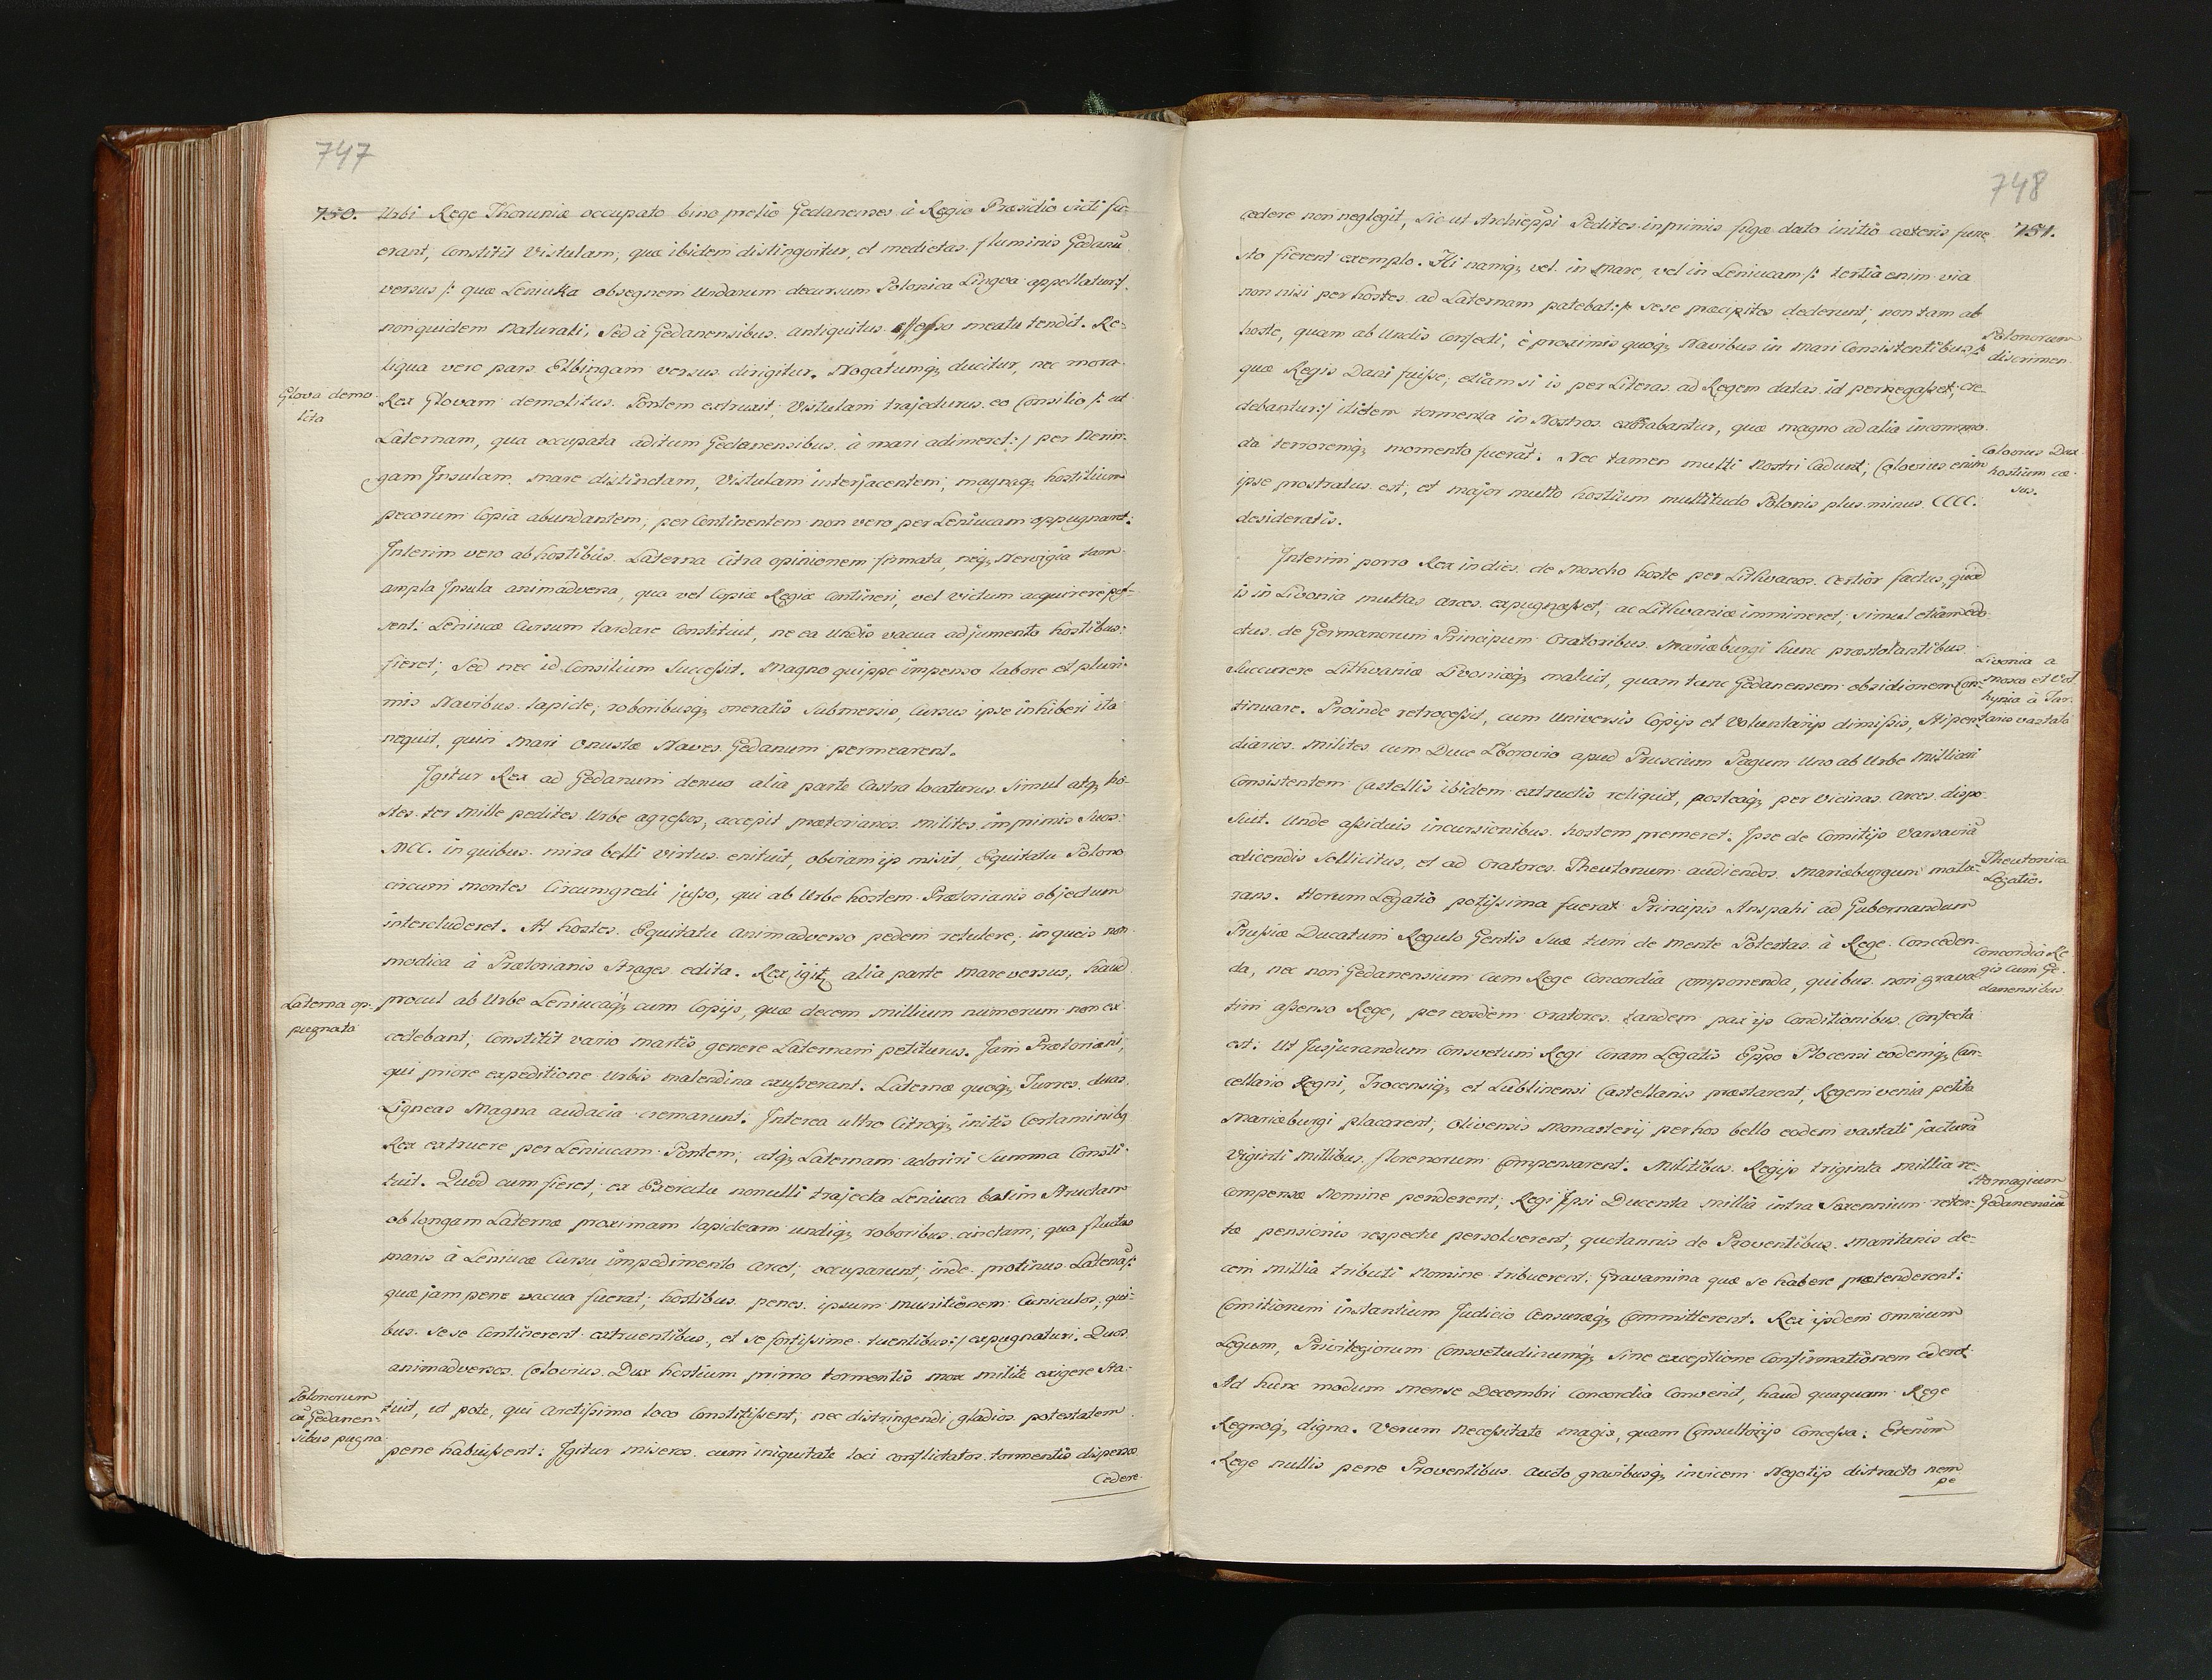 747
750.
Urbi Rege Thoruniæ occupato bino prelio Gedanenses à Regio Præsidio victi fu-
erant, Constitit Vistulam, quæ ibidem distinguitur, et medietas fluminis Gedanũ
versus /: quæ Leniuka obsegnem Undarum decursum Polonica Lingva appellatur:/
non quidem Naturali, Sed à Gedanensibus antiquitus effosso meatu tendit. Re-
liqua vero pars Elbingam versus dirigitur. Nogatumq; ducitur, nec mora
Glova demo-
lita
Rex Glovam demolitus. Pontem extruxit, Vistulam trajecturus eo Consilio /: ut
Laternam, qua occupata aditum Gedanensibus à mari adimeret:/ per Nerin-
gam Insulam mare distinctam, Vistulam interjacentem, magnaq; hostilium
pecorum Copia abundantem, per Continentem non vero per Leniucam oppugnaret.
Interim vero ab hostibus Laterna Citra opinionem firmata, neq; Nerigia tam
ampla Insula animadversa, qua vel Copiæ Regiæ Contineri, vel Victum acquirere pos-
sent: Leniucæ Cursum tardare Constituit, ne ea Undis vacua adjumento hostibus
fieret; Sed nec id Consilium Successit. Magno quippe impenso labore et pluri-
mis Navibus lapide, roboribusq; oneratis Submersis, Cursus ipse inhiberi ita
nequit, quin Mari Onustæ Naves Gedanum permearent.
Igitur Rex ad Gedanum denuo alia parte Castra locaturus Simul atq; ho-
stes ter Mille pedites Urbe agressos, accepit prætorianos Milites imprimis Suos
MCC. in quibus mira belli Virtus enituit, obviam ijs misit, Equitatu Polono
circum montes Circumgredi jusso, qui ab Urbe hostem Prætorianis objectum
intercluderet. At hostes Equitatu animadverso pedem retulere, in queis non
modica à Prætorianis Strages edita. Rex igit, alia parte Mare versus, haud
Laterna op-
pugnata
procul ab Urbe Leniucaq; cum Copijs, quæ decem Millium numerum non ex-
cedebant, Constitit vario Martis genere Laternam petiturus. Jam Prætoriani,
qui priore expeditione Urbis malendina exusserant. Laternæ quoq; Turres duas
Ligneas Magna audacia cremarunt. Interea ultro Citroq; initis Certaminibq
Rex extruere per Leniucam Pontem, atq; Laternam adoriri Summa Consti-
tuit. Quod cum fieret, ex Exercitu nonulli trajecta Leniuca basim Structam
oblongam Laternæ proximam lapideam undiq; roboribus cinctam, qua fluctus
maris à Leniucæ Cursu impedimento arcet, occuparunt, inde protinus Laterna /:
quæ jam pene vacua fuerat, hostibus penes ipsum munitionem Cuniculos, qui-
bus sese Continerent extruentibus, et se fortissime tuentibus:/ expugnaturi. Quos
animadversos Colovius Dux hostium primo tormentis mox milite exigere Sta-
Polonorum
cũ Gedanen-
sibus pugna
tuit, ut pote, qui arctissimo loco Constitissent, nec distringendi gladios potestatem
pene habuissent. Igitur miseros cum iniquitate loci conflictatos tormentis dispersos
Cedere
748
751.
cedere non neglegit, Sic ut Archieppi Pedites inprimis fugæ dato initio cæteris fune-
sto fierent exemplo. Hi namq; vel in Mare, vel in Leniucam /: tertia enim via
non nisi per hostes ad Laternam patebat:/ sese præcipites dederunt, non tam ab
Polonorum
discrimen
hoste, quam ab Undis Confecti, è proximis quoq; Navibus in Mari Consistentibus /:
quæ Regis Dani fuisse, etiamsi is per Literas ad Regem datas id pernegasset, cre-
debantur:/ itidem tormenta in Nostros vibrabantur, quæ magno ad alia incommo-
da terroremq; momento fuerãt. Nec tamen multi Nostri Cadunt, Colovius enim
Colovius Dux
hostium cæ-
sus.
ipse prostratus est, et major multo hostium multitudo Polonis plus minus CCCC.
desideratis.
Interim porro Rex indies de Moscho hoste per Lithvanos Certior factus, quod
is in Livonia multas arces expugnasset, ac Lithvaniæ immineret, simul etiam edo-
ctus de Germanorum Principum Oratoribus Mariæburgi hunc præstolantibus
Livonia a
Mosco et Vol-
hynia à Tar-
taris vastata
Succurere Lithvaniæ Livoniæq; maluit, quam tunc Gedanensem obsidionem Con-
tinuare. Proinde retrocessit, cum Universis Copijs et Voluntarijs dimissis, Stipen-
diarios Milites cum Duce Zborovio apud Pruscium Pagum Uno ab Urbe Milliari
Consistentem Castellis ibidem extructis reliquit, posteaq; per vicinas Arces dispo-
suit. Unde assiduis incursionibus hostem premeret. Ipse de Comitijs Varsaviæ
edicendis Sollicitus, et ad Oratores Theutonum audiendos Mariæburgum matu-
Theutonica
Legatio.
rans. Horum Legatio potissima fuerat Principis Anspahi ad Gubernandum
Prussiæ Ducatum Regulo Gentis Suæ tum de mente Potestas à Rege Conceden-
Concordia Re-
gis cum Ge-
danensibus
da, nec non Gedanensium Cum Rege Concordia Componenda, quibus non grava-
tim assenso Rege, per eosdem Oratores tandem pax ijs Conditionibus Confecta
est: Ut Jusjurandum Consvetum Regi Coram Legatis Eppo Plocensi eodemq; Can-
cellario Regni, Trocensiq; et Lublinensi Castellanis præstarent, Regem venia petita
Mariæburgi placarent, Olivensis Monasterij per hos bello eodem vastati jacturã
Viginti Millibus florenorum Compensarent. Militibus Regijs triginta millia re-
Homagium
Gedanensiũ
compensæ Nomine penderent, Regi Ipsi Ducenta Millia intra Sexennium reten-
tæ pensionis respectu persolverent, quotannis de Proventibus Maritanis de-
cem Millia tributi Nomine tribuerent. Gravamina quæ se habere prætenderent:
Comitiorum instantium Judicio Censuræq; Committerent. Rex ipsdem Omnium
Legum, Privilegiorum Consvetudinumq; Sine exceptione Confirmationem ederet.
Ad hunc modum Mense Decembri Concordia Convenit, haud quaquam Rege
Regnoq; digna. Verum Necessitate magis, quam Consultorijs Concessa. Etenim
Rege nullis pene Proventibus aucto gravibusq; invicem Negotijs distracto nem-
pe